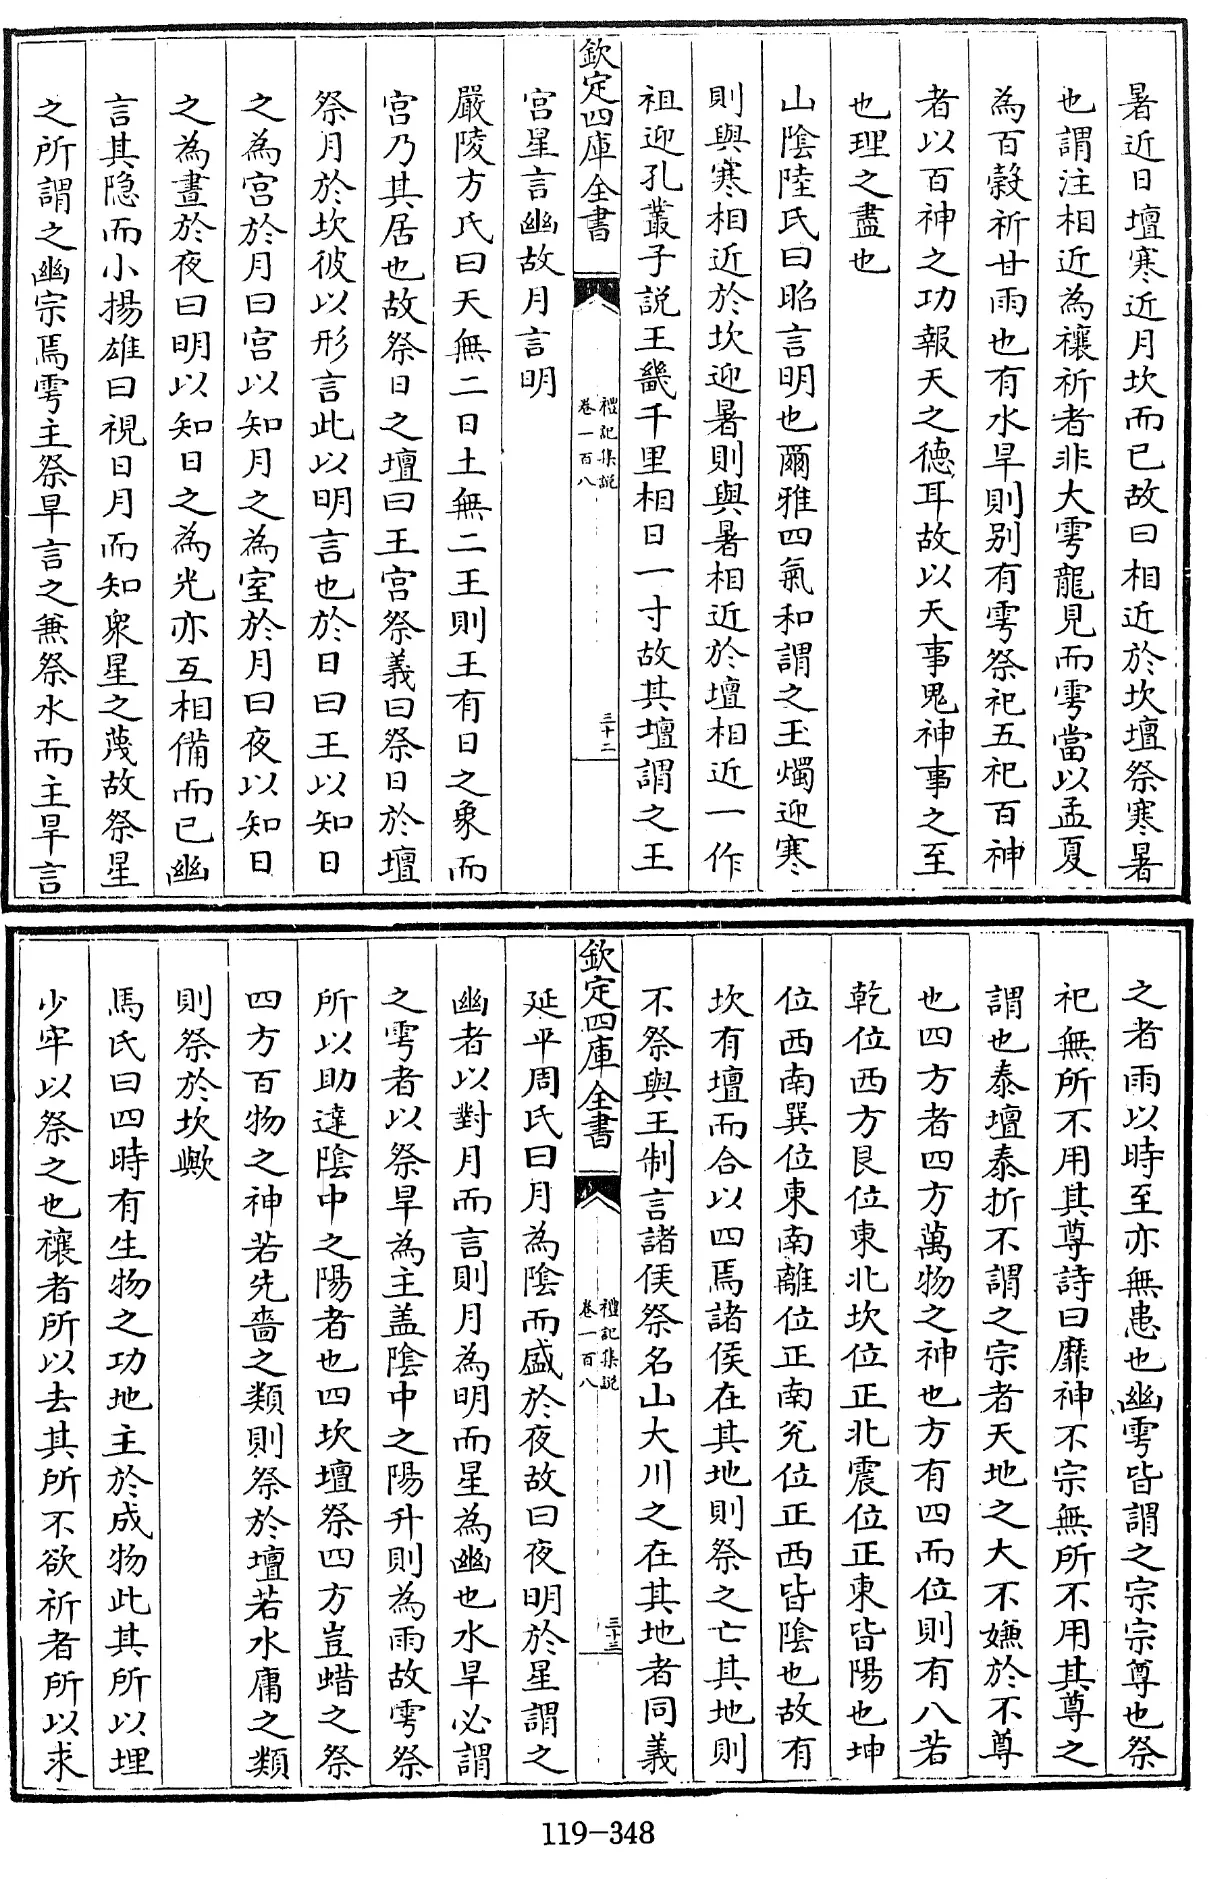 暑近日壇寒近月坎而已故曰相近於坎壇祭寒暑
也謂注相近為禳祈者非大雩龍見而雩當以孟夏
為百穀祈甘雨也有水旱則別有雩祭祀五祀百神
者以百神之功報天之德耳故以天事鬼神事之至
也理之盡也
山陰陸氏曰昭言明也爾雅四氣和謂之玉燭迎寒
則與寒相近於坎迎暑則與暑相近於壇相近一作
祖迎孔叢子説王畿千里相日一寸故其壇謂之王
欽定四庫全書
禮記集説
卷一百八
三十二
宮星言幽故月言明
嚴陵方氏曰天無二日土無二王則王有日之象而
宮乃其居也故祭日之壇曰王宮祭義曰祭日於壇
祭月於坎彼以形言此以明言也於日曰王以知日
之為宮於月曰宮以知月之為室於月曰夜以知日
之為晝於夜曰明以知日之為光亦互相備而已幽
言其隐而小揚雄曰視日月而知衆星之蔑故祭星
之所謂之幽宗焉雩主祭旱言之兼祭水而主旱言
之者雨以時至亦無患也幽雩皆謂之宗宗尊也祭
祀無所不用其尊詩曰靡神不宗無所不用其尊之
謂也泰壇泰折不謂之宗者天地之大不嫌於不尊
也四方者四方萬物之神也方有四而位則有八若
乾位西方艮位東北坎位正北震位正東皆陽也坤
位西南巽位東南離位正南兊位正西皆陰也故有
坎有壇而合以四焉諸侯在其地則祭之亡其地則
不祭與王制言諸侯祭名山大川之在其地者同義
欽定四庫全書
禮記集説
卷一百八
三十三
延平周氏曰月為陰而盛於夜故曰夜明於星謂之
幽者以對月而言則月為明而星為幽也水旱必謂
之雩者以祭旱為主盖陰中之陽升則為雨故雩祭
所以助達陰中之陽者也四坎壇祭四方豈蜡之祭
四方百物之神若先嗇之類則祭於壇若水庸之類
則祭於坎歟
馬氏曰四時有生物之功地主於成物此其所以埋
少牢以祭之也禳者所以去其所不欲祈者所以求
119-348